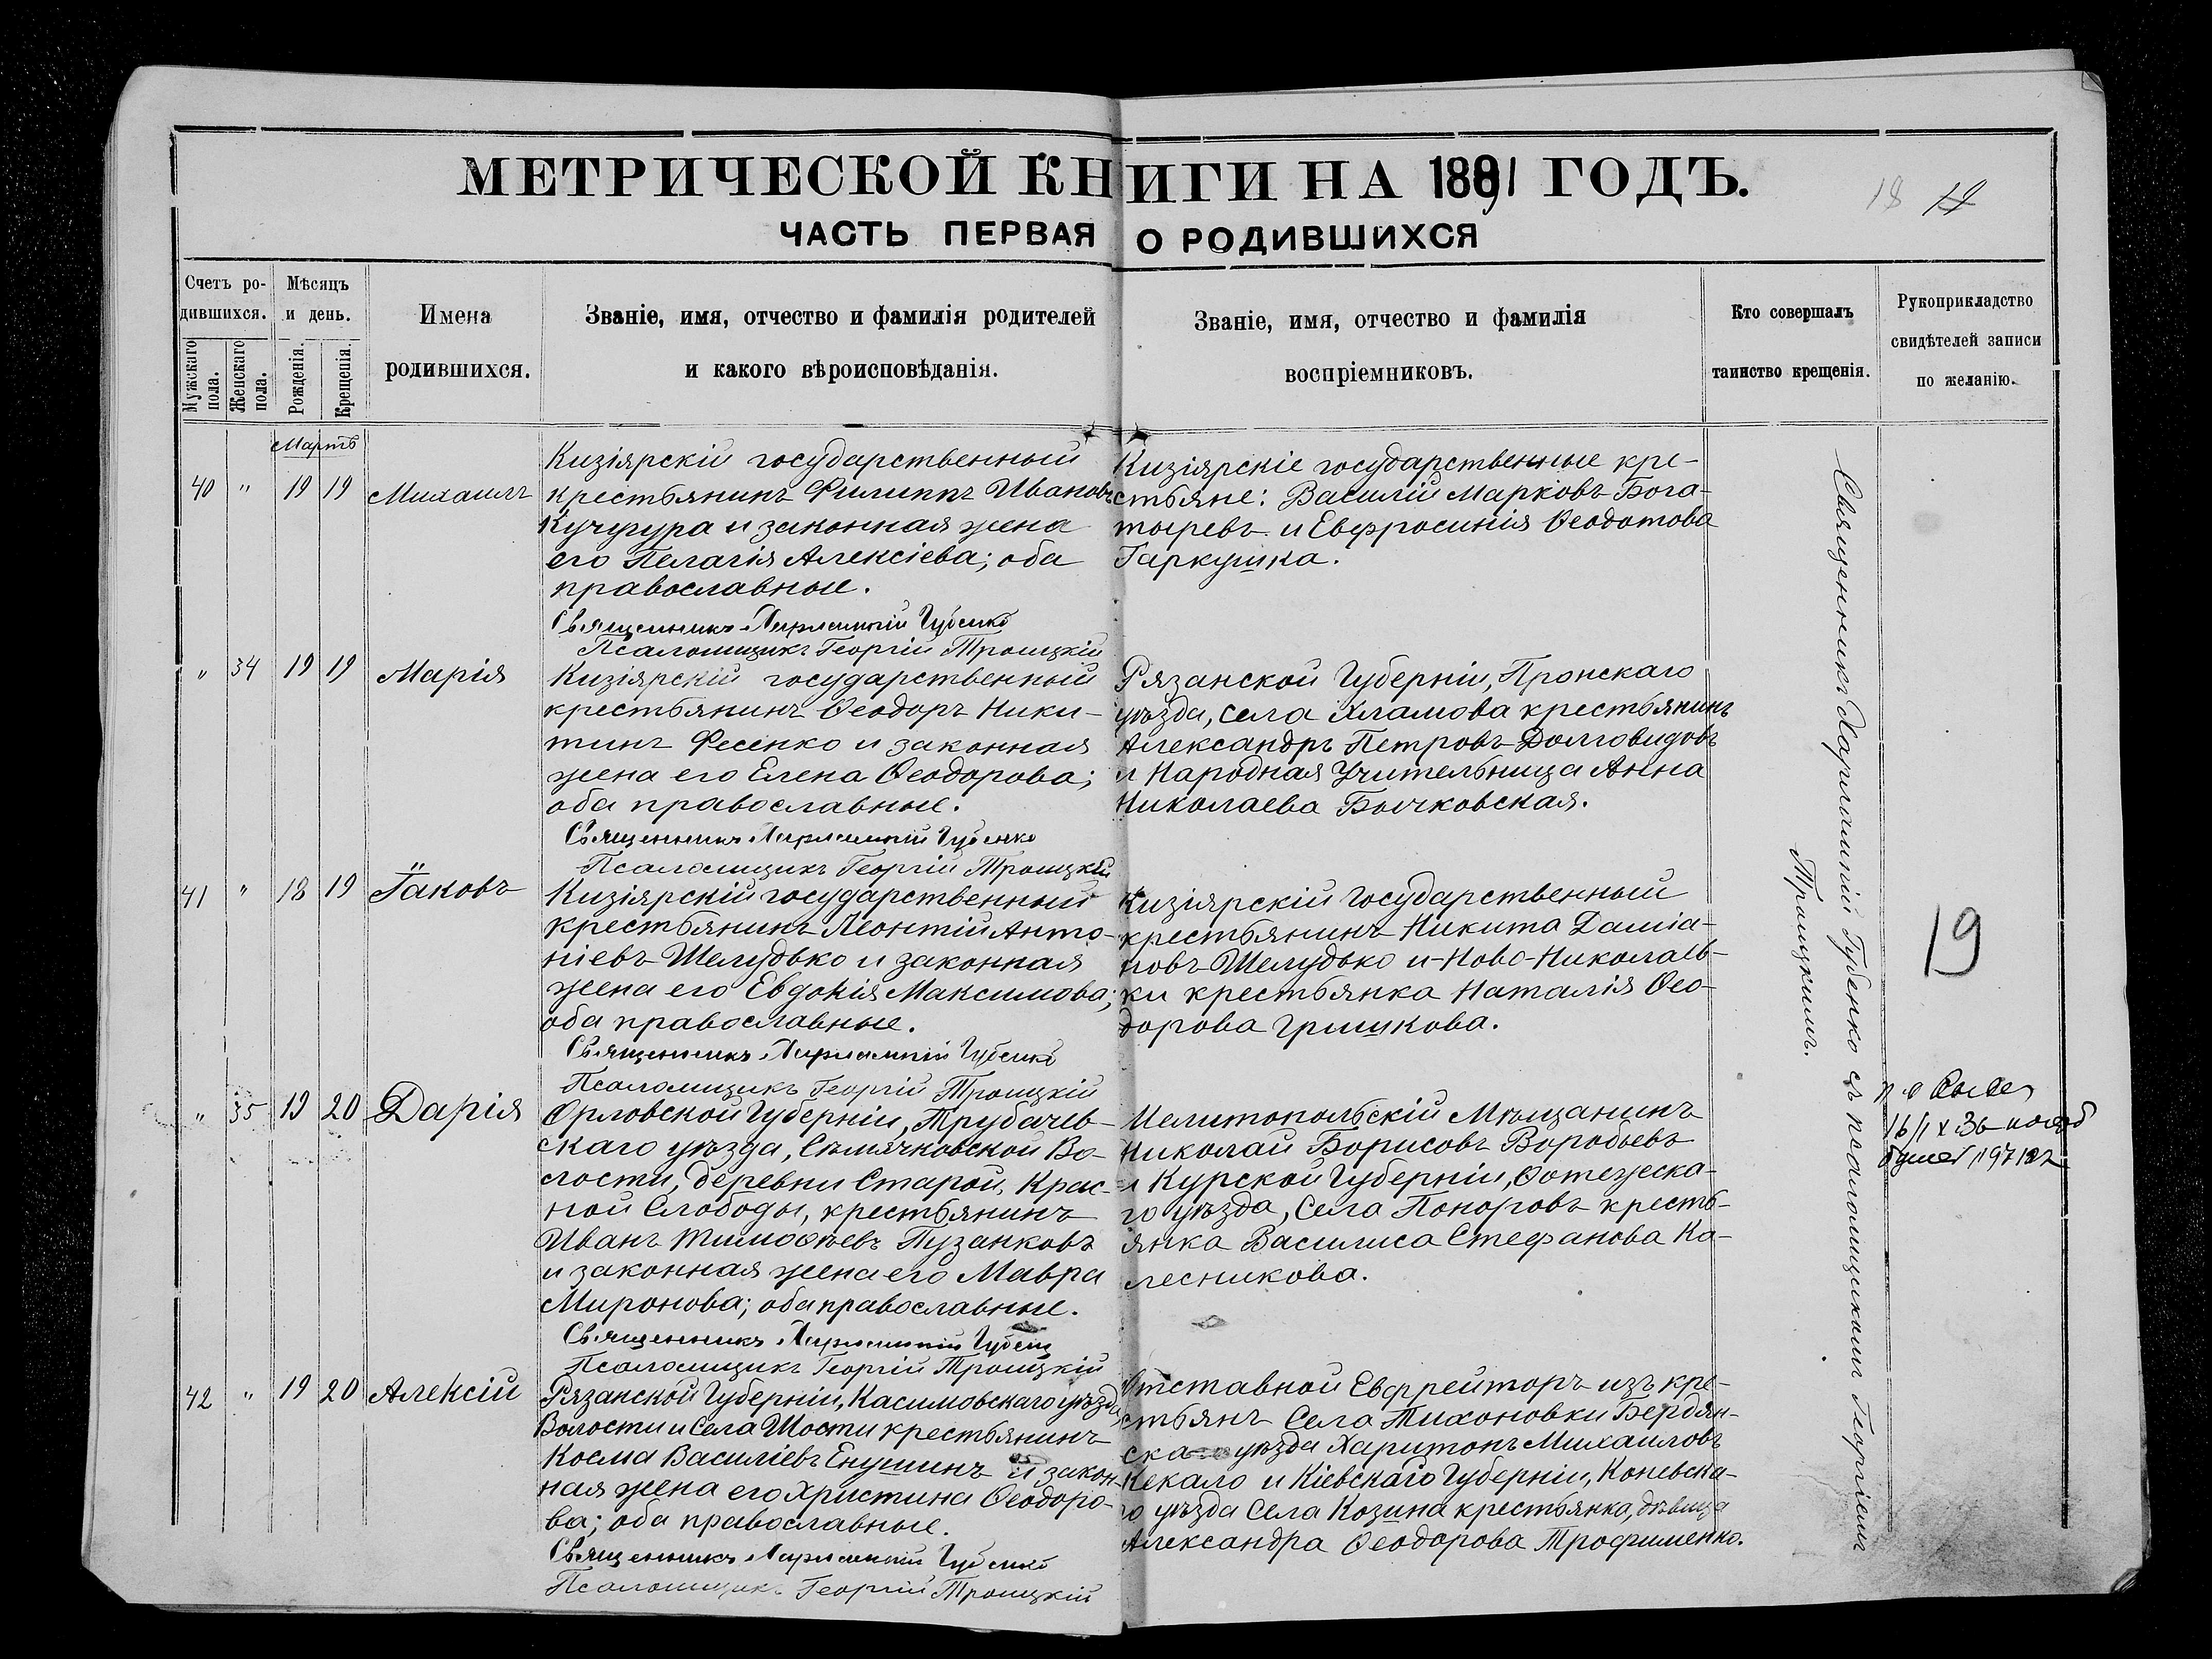 МЕТРИЧЕСКОЙ КНИГИ НА 1891 ГОДЪ.
18
ЧАСТЬ ПЕРВАЯ О РОДИВШИХСЯ
Счетъ ро-
дившихся.
Мужскаго пола.
Женскаго пола.
Мѣсяцъ
и день.
Рожденія.
Крещенія.
Имена
родившихся.
Званіе, имя, отчество и фамилія родителей
и какого вѣроисповѣданія.
Званіе, имя, отчество и фамилія
воспріемниковъ.
Кто совершалъ
таинство крещенія.
Рукоприкладство
свидѣтелей записи
по желанію.
Мартъ
40 " 19 19 Михаилъ
Кизіярскій государственный
крестьянинъ Филиппъ Ивановъ
Кучугура и законная жена
его Пелагія Алексіева; оба
православные.
Священникъ Харлампій Губенко
Псаломщикъ Георгій Троицкій
Кизіярскіе государственные кре-
стьяне: Василій Марковъ Бога-
тыревъ и Евфросинія Ѳеодотова
Гаркушка.
" 34 19 19 Марія
Кизіярскій государственный
крестьянинъ Ѳеодоръ Ники-
тинъ Фесенко и законная
жена его Елена Ѳеодорова;
оба православные.
Священникъ Харлампій Губенко
Псаломщикъ Георгій Троицкій
Рязанской Губерніи, Пронскаго
уѣзда, села Хламова крестьянинъ
Александръ Петровъ Долговидовъ
и Народная Учительница Анна
Николаева Бычковская.
41 " 18 19 Іаковъ
Кизіярскій государственный
крестьянинъ Леонтій Анто-
ніевъ Шелудько и законная
жена его Евдокія Максимова;
оба православные.
Священникъ Харлампій Губенко
Псаломщикъ Георгій Троицкій
Кизіярскій государственный
крестьянинъ Никита Даміа-
новъ Шелудько и Ново-Николаев-
ки крестьянка Наталія Ѳео-
дорова Гришкова.
" 35 19 20 Дарія
Орловской Губерніи, Трубачев-
скаго уѣзда, Сѣмячковской Во-
лости, деревни Старой, Крас-
ной Слободы, крестьянинъ
Иванъ Тимоѳеевъ Пузанковъ
и законная жена его Мавра
Миронова; оба православные.
Священникъ Харлампій Губенко
Псаломщикъ Георгій Троицкій
Мелитопольскій Мѣщанинъ
Николай Борисовъ Воробьевъ
и Курской Губерніи, Фотежска-
го уѣзда, Села Поноровъ кресть-
янка Василиса Стефанова Ка-
лесникова.
42 " 19 20 Алексій
Рязанской Губерніи, Касимовскаго уѣзда,
Волости и Села Шости крестьянинъ
Косма Василіевъ Енушинъ и закон-
ная жена его Христина Ѳеодоро-
ва; оба православные.
Священникъ Харлампій Губенко
Псаломщикъ Георгій Троицкій
Отставной Ефрейторъ изъ кре-
стьянъ Села Тихоновки Бердян-
скаго уѣзда Харитонъ Михаиловъ
Кекало и Кіевскаго Губерніи, Каневска-
го уѣзда Села Козина крестьянка, дѣвица
Александра Ѳеодорова Трофименко.
Священникъ Харлампій Губенко съ псаломщикомъ Георгіемъ
Троицкимъ.
19